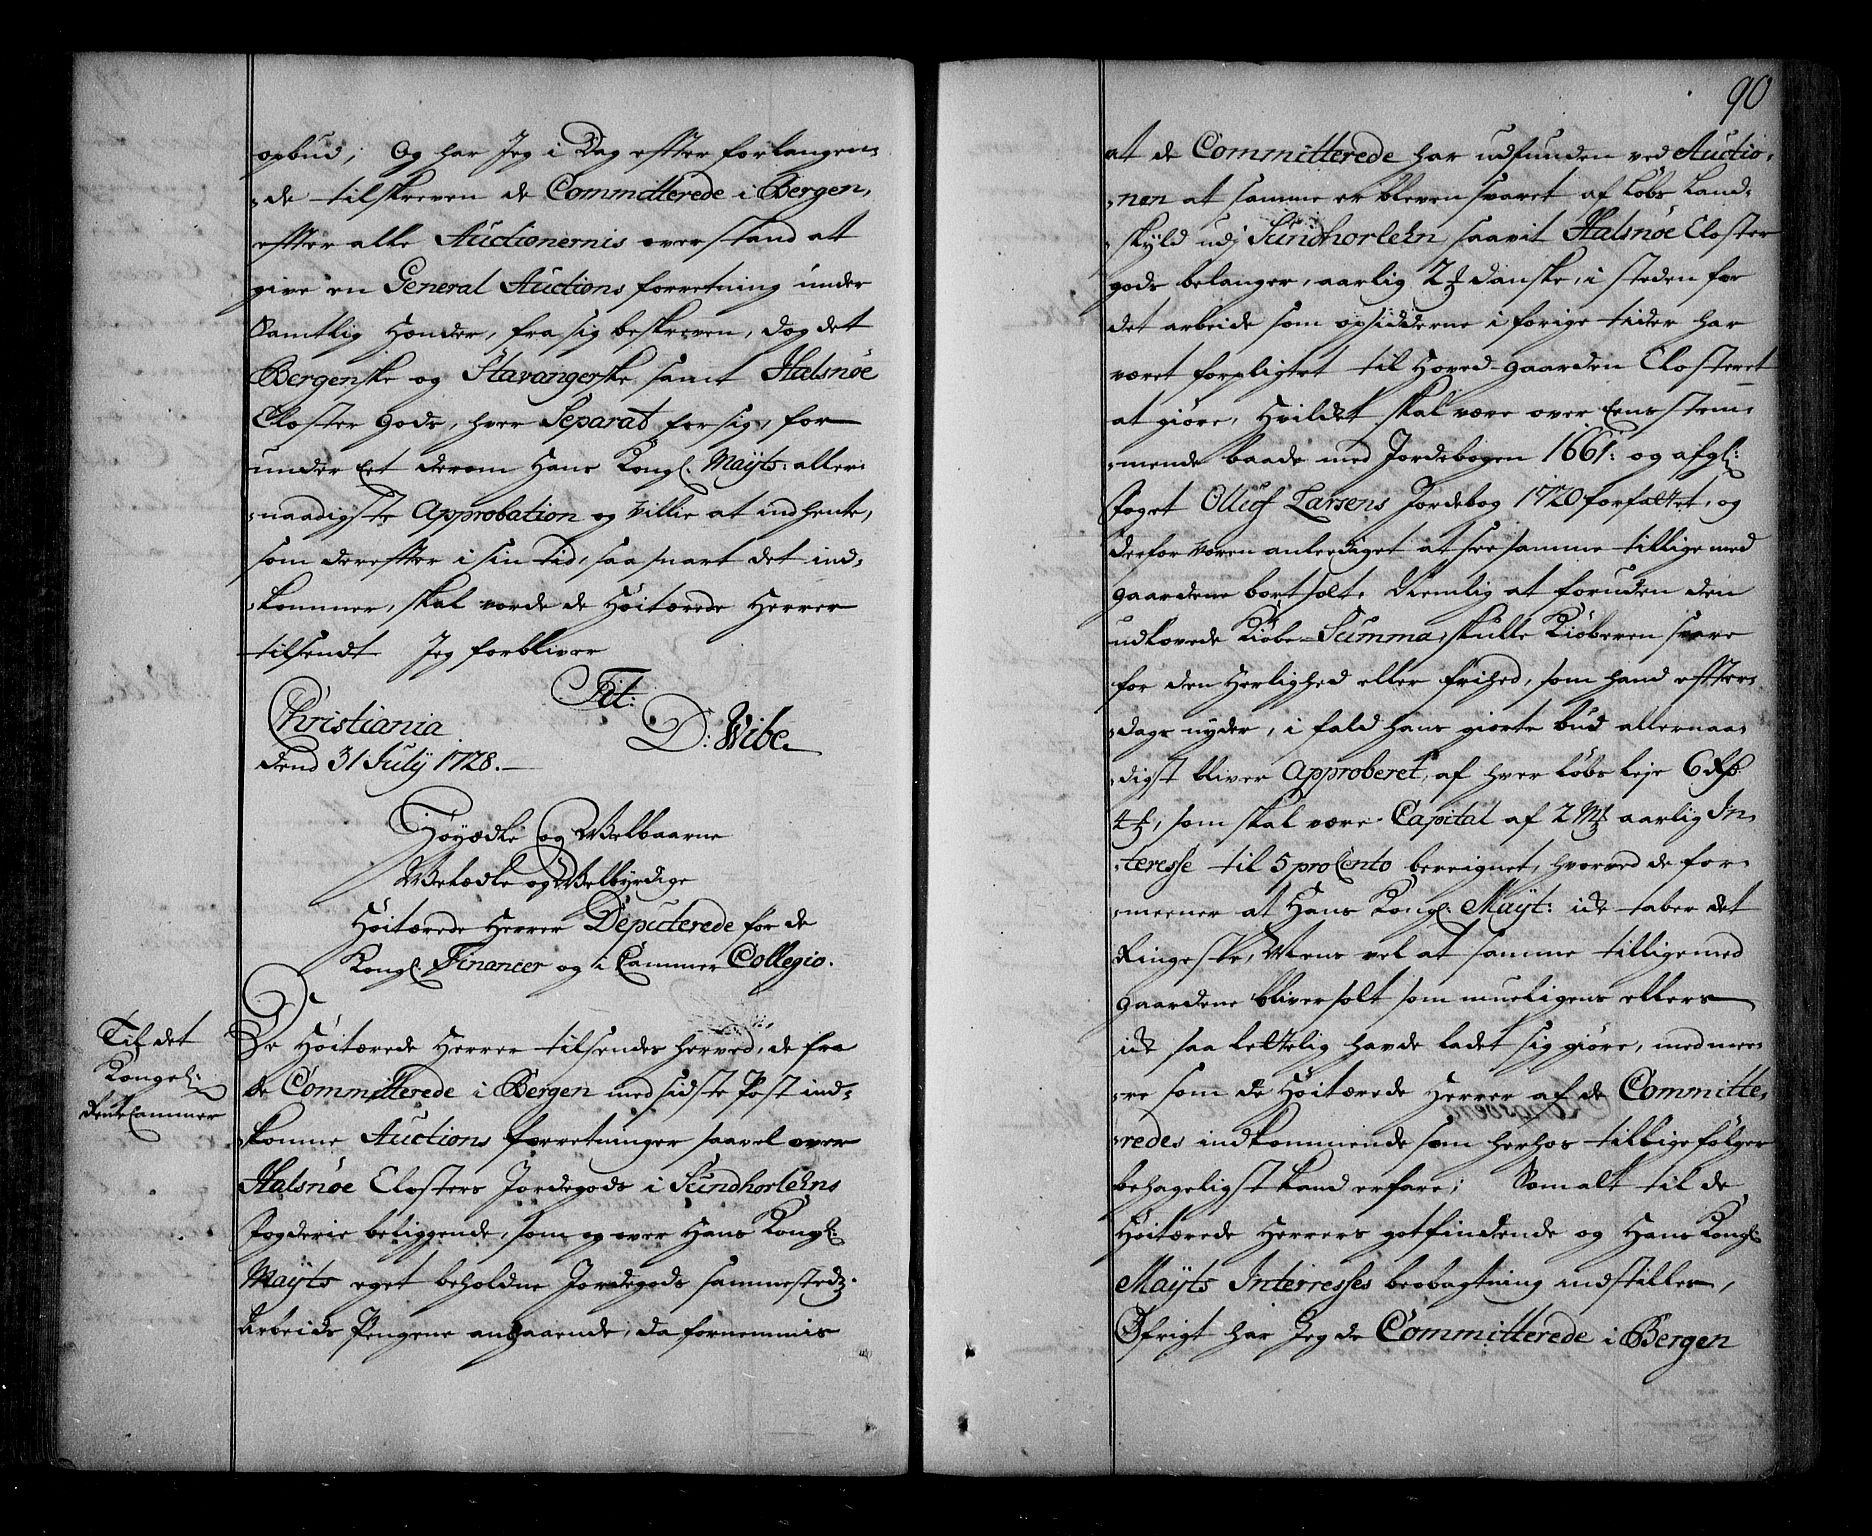 opbud; Og har Jeg i Dag effter forlangen-
-de tilskreven de Committerede i Bergen,
effter alle Auctionernis overstand att
give en General Auctions forretning under
Samtlig Hænder, fra sig beskreven, dog det
Bergenske og Stavangerske samt Halsnøe
Closter Gods, hver Separat for sig, for
under Eet derom Hans Kongl: Mayts: aller-
-naadigste Approbation og Villie at indhente,
som dereffter i sin tid, saa snart det ind-
-kommer, skal vorde de Høitærede Herrer
tilsendt. Jeg forbliver
Tit:
Christiania D: Wibe.
dend 31 July 1728.
Høyædle og Welbaarne
Welædle og Welbyrdige
Høitærede Herrer Deputerede for de
Kongl: Financer og i Cammer Collegio.
Til det
Kongel:
RenteCammer
De Høitærede Herrer tilsendes herved, de fra
de Committerede i Bergen med sidste Post ind-
-komne Auctions forretninger saavel over
Halsnøe Closters Jordegods i Sundhorlehns
Fogderie beliggende, som og over Hans Kongl:
Mayts eget beholdne Jordegods sammestedz.
Arbeids Pengene angaaende, da fornemmis
90
at de Committerede har udfunden ved Auctio-
-nen at samme er bleven svaret af Løbs Land-
-skyld udj Sundhorlehn saavit Halsnøe Closter
gods belanger, aarlig 2 ₰ danske, i steden for
det arbeide som opsidderne i forige tider har
været forpligtet til Hoved-gaarden Closteret
at giøre, Hvildet skal være over Eensstem-
-mende baade med Jordebogen 1661: og afgl:
Foget Olluf Larsens Jordebog 1720 forfattet, og
derfor væren anlediget at see samme tillige med
gaardene bortsolt. Nemlig at foruden den
udlovede Kiøbe-Summa, skulle Kiøberen svare
for den Herlighed eller frihed, som hand effter-
-dags nyder, i fald hans giorte bud allernaa-
-digst bliver Approberet, af hver Løbs Leje 6 Rd
4 ₰, som skal være Capital af 2 Mk aarlig In-
-teresse til 5 pro Cento bereignet, hvorved de for-
-meener at Hans Kongl: Mayt: icke taber det
Ringeste, Mens vel at samme tilligemed
gaardene bliver solt som mueligens ellers
icke saa lettelig havde ladet sig giøre, med mee-
-re som de Høitærede Herrer af de Committe-
-redes indkommende som herhos tillige følger
behageligst kand erfare; Som alt til de
Høitærede Herrers gotfindende og Hans Kongl:
Mayts Interesses beobagtning indstilles,
Øfrigt har Jeg de Committerede i Bergen